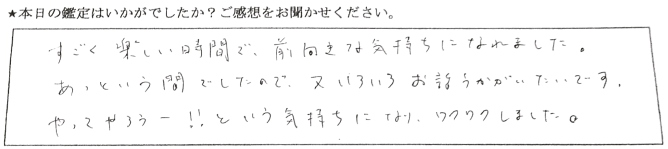 ★本日の鑑定はいかがでしたか？ご感想をお聞かせください。
すごく楽しい時間で、前向きな気持ちになれました。
あっという間でしたので、又いろいろお話うかがいたいです。
やってやろうー!!という気持ちになり、ワクワクしました。